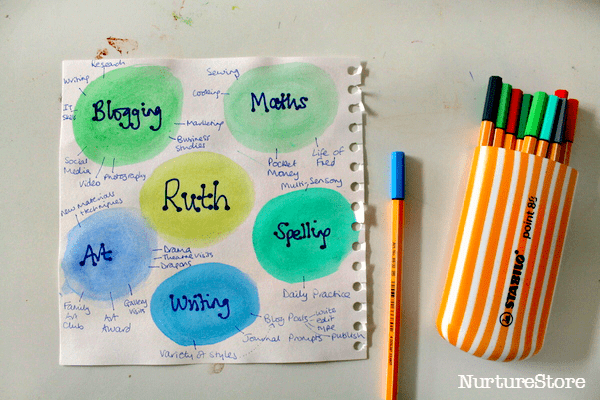 Research
Writing
IT
Skills
Blogging
Marketing
Business
studies
Social
Media
Video
Photography
Sewing
Cooking
Maths
Pocket
Money
Life of
Fred
Ruth
Multi-Sensory
Spelling
Daily Practice
New Materials
techniques
Art
Drama
Theatre visits
Dragons
Family
Art
Club
Art
Award
Gallery
Visits
Writing
Blog Posts
write
edit
type
Journal Prompts
publish
Variety of styles
STABILO point 88
NurtureStore